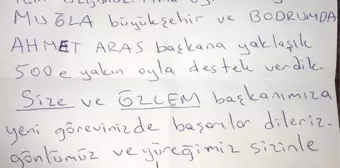 MUĞLA büyükşehir ve BODRUMDA
AHMET ARAS başkana yaklaşık
500e yakın oyla destek verdik.
Size ve ÖZLEM başkanımıza
yeni görevinizde başarılar dileriz.
gönlümüz ve yüreğimiz sizinle